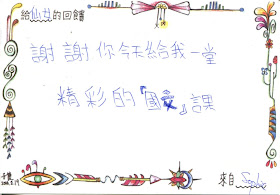 給仙女的回饋
謝謝你今天給我一堂
精彩的『國文』課
來自